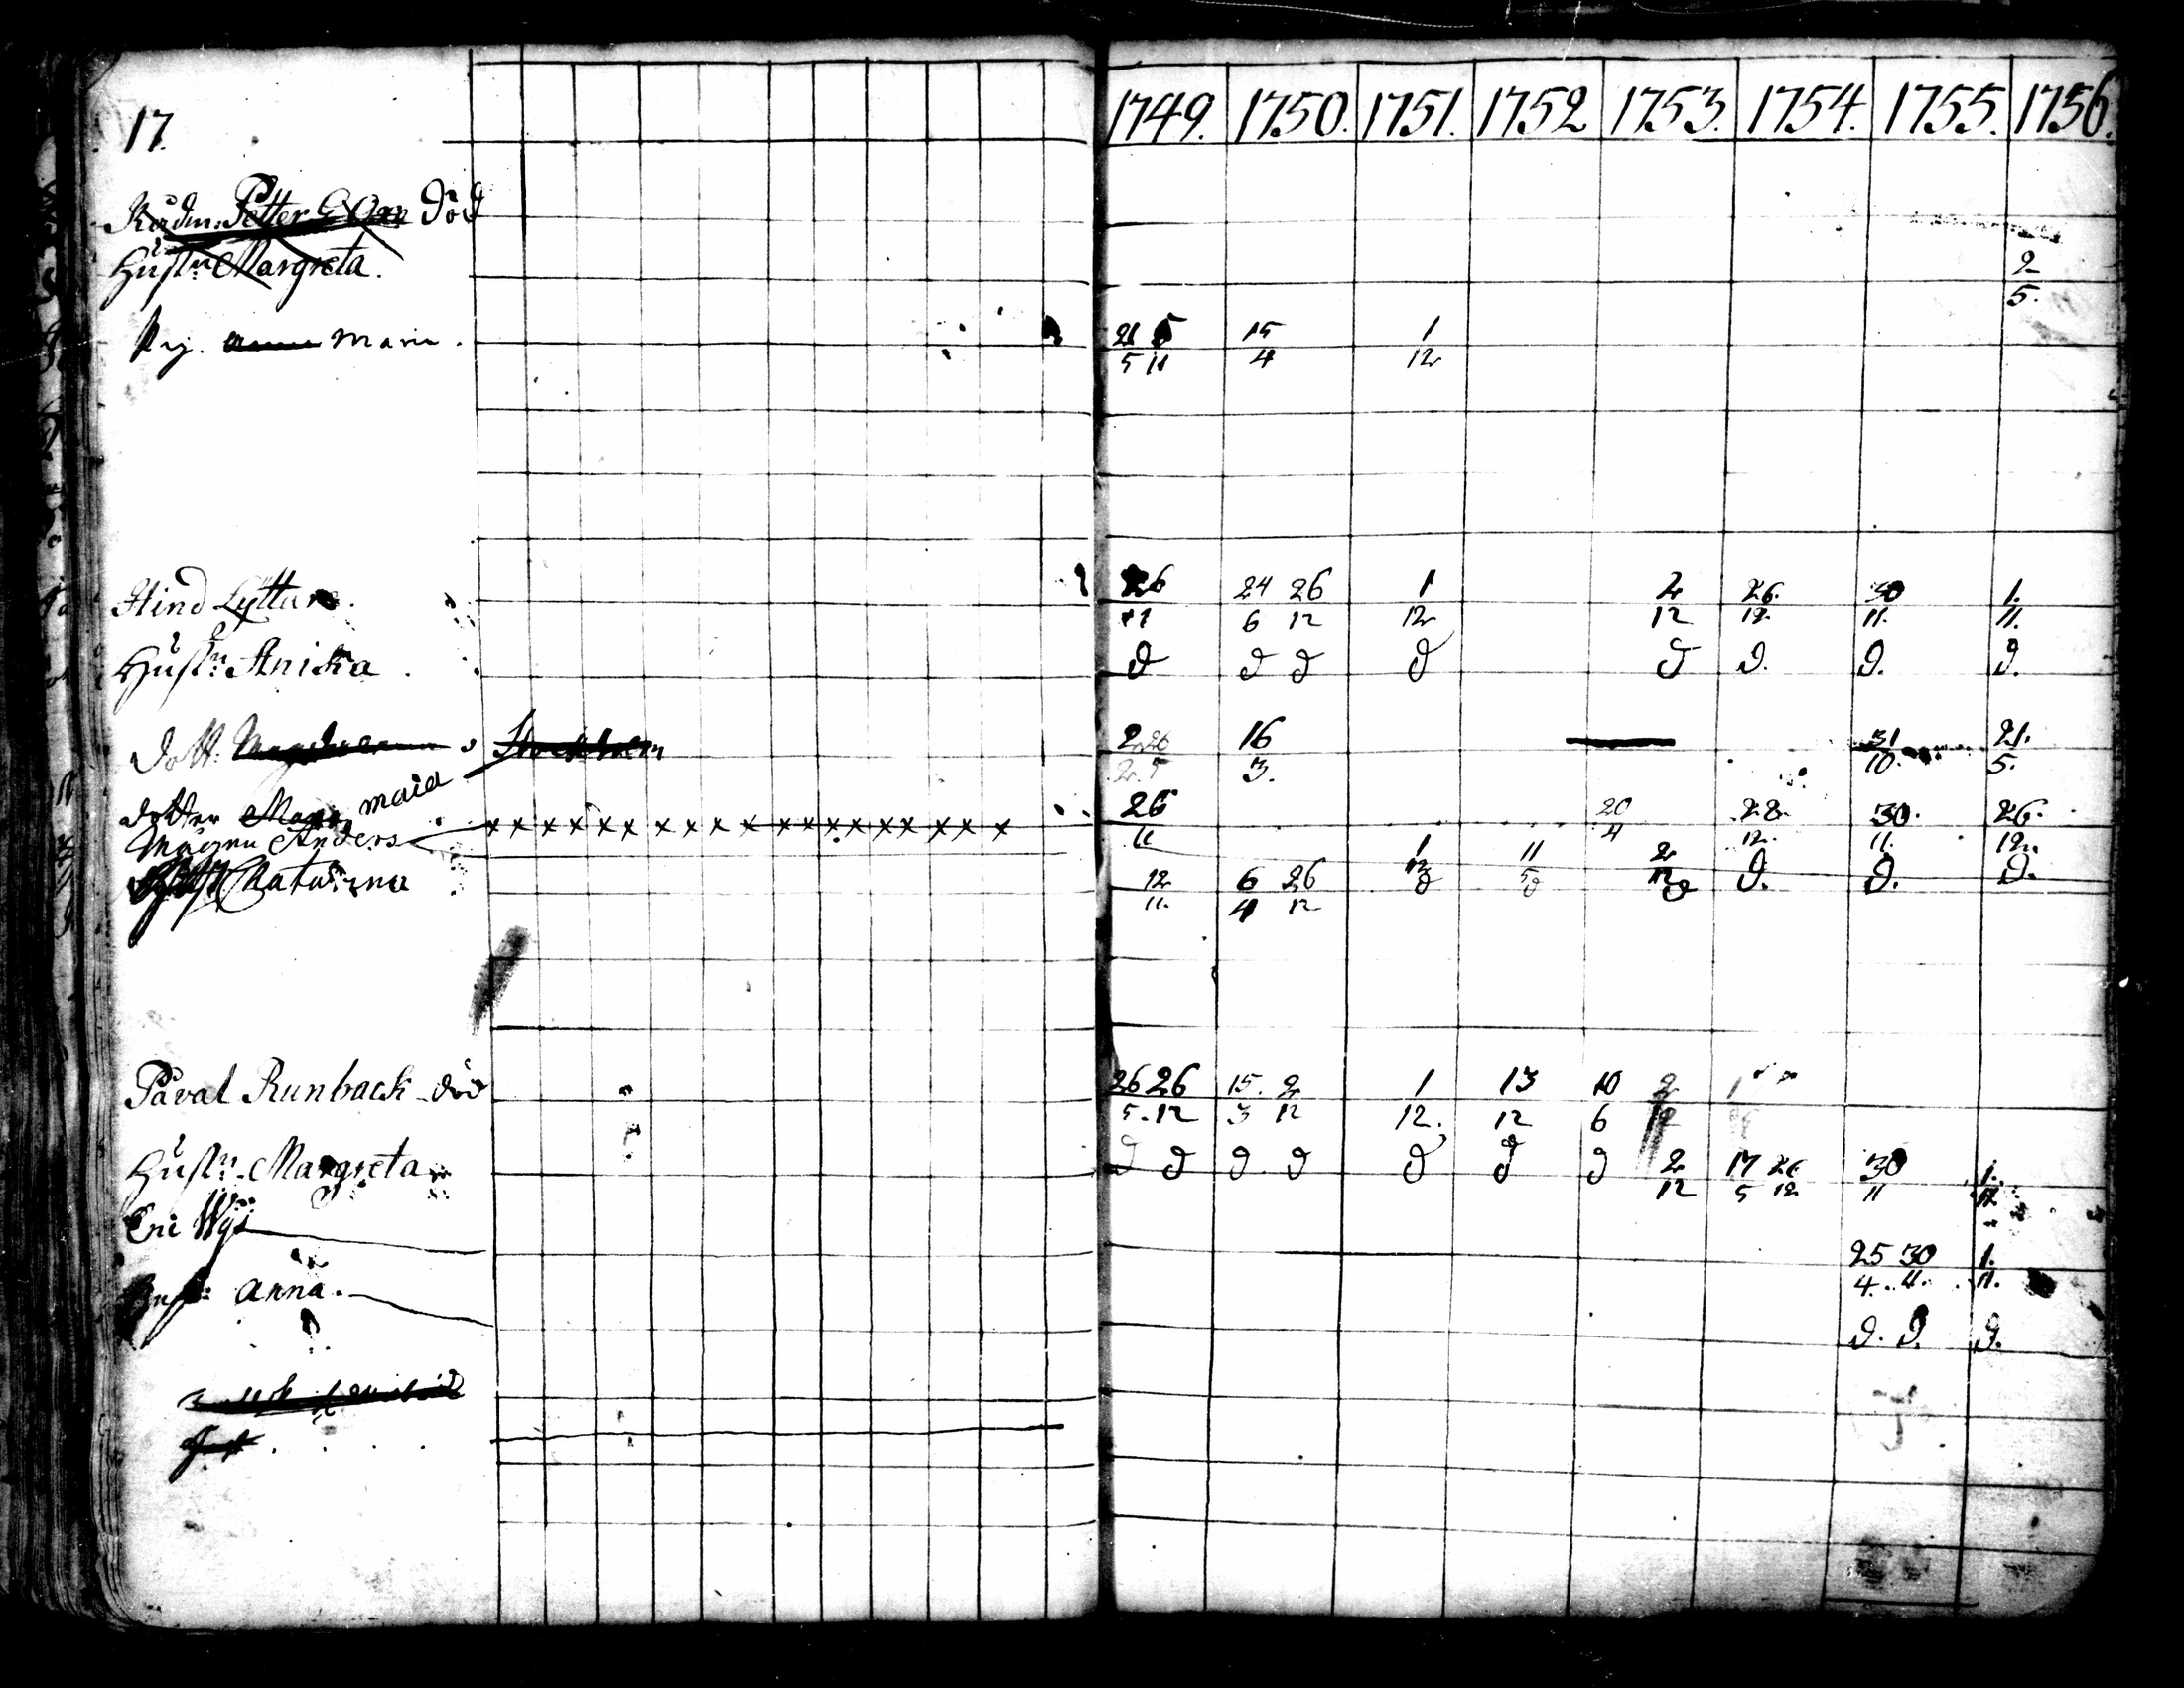 1749. 1750. 1751. 1752 1753. 1754. 1755. 1756.
17.
Petter död
Hustr: Margreta.
2
5.
Pig. Maria.
21 5 15 1
5 11 4 12
Hind Lyttare.
26 24 26 1 2 26. 30 1.
11 6 12 12 12 12. 11. 11.
Hustr: Anika.
D D D D D D. D. D.
Dott: Stockholm
2 26 16 31 21.
2. 5 3. 10. 5.
dotter maia
26 20 28 30. 26.
11 4 12. 11. 12.
Mågen Anders x x x x x x x x x x x x x x x x x x x
1 11 2
12 5 12
Catarina
12 6 26 D D D D. D. D.
11. 4 12
Påval Runback död
26 26 15. 2 1 13 10 2
5. 12 3 12 12. 12 6 12
Hustr: Margreta
D D D D D D D 2 17 26 30 1.
12 5 12 11
Eric
25 30 1.
4. 11. 11.
Hustr: Anna.
D. D. D.